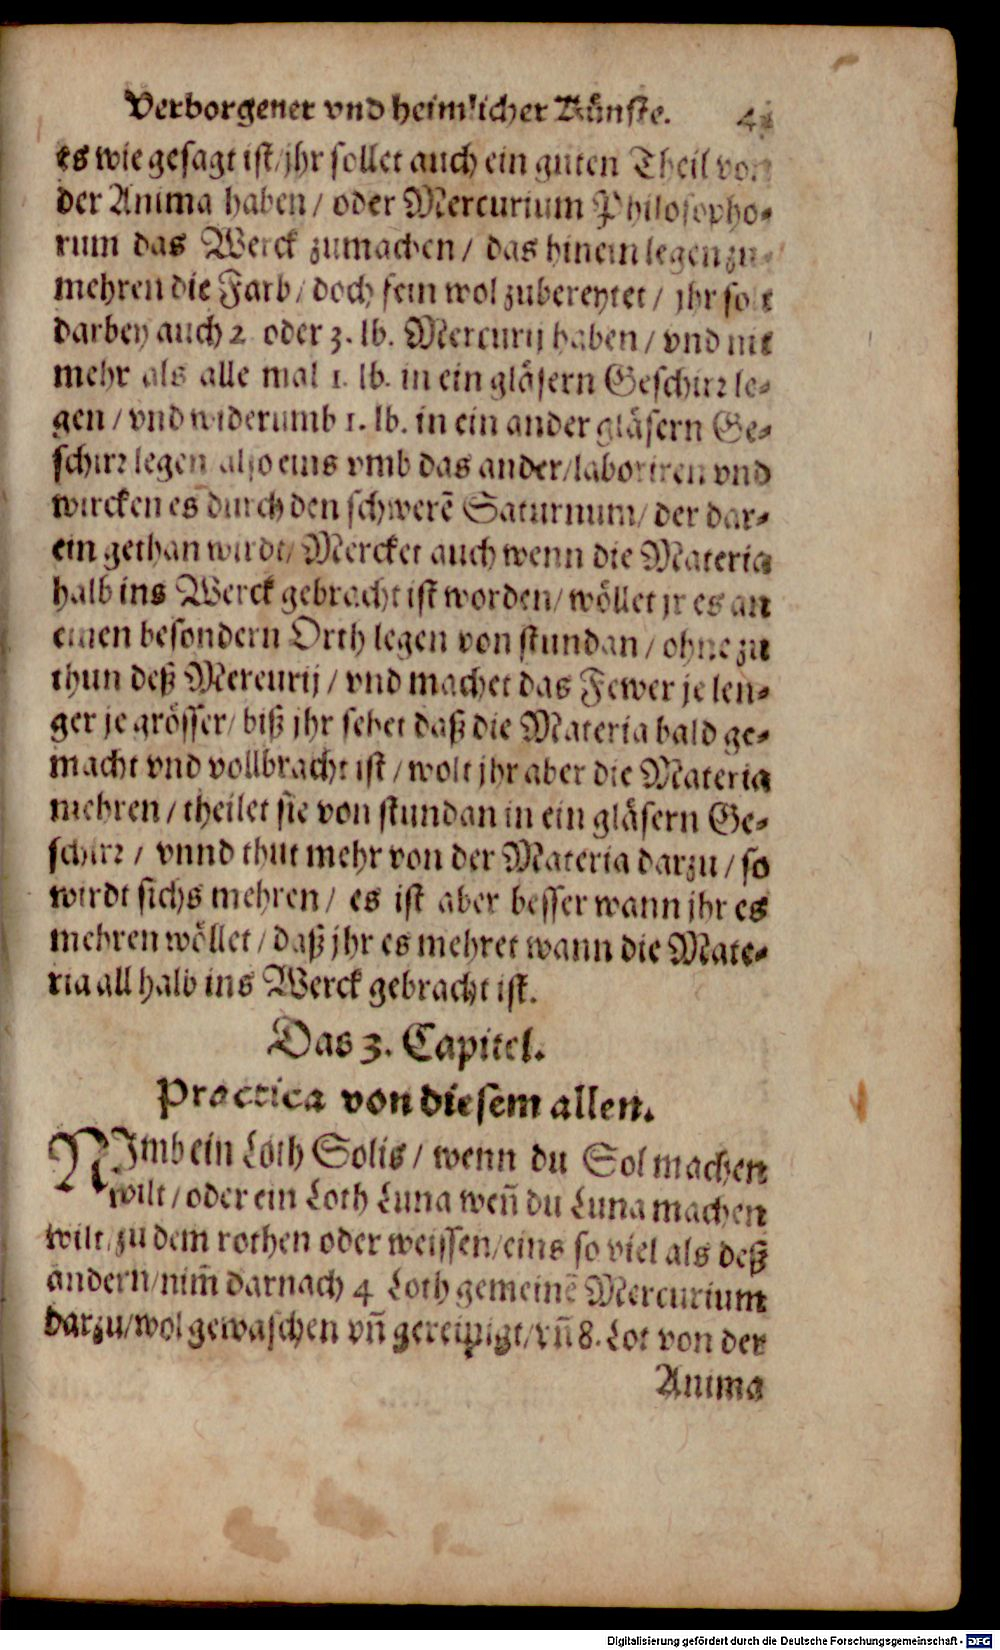 Verborgener vnd heimlicher Künste.
es wie gesagt ist/ jhr sollet auch ein guten Theil von
der Anima haben / oder Mercurium Philosopho-
rum das Werck zumachen / das hinein legen zu-
mehren die Farb / doch fein wol zubereytet / jhr solt
darbey auch 2. oder 3. lb. Mercurij haben / vnd nit
mehr als alle mal 1. lb. in ein gläsern Geschirr le-
gen / vnd widerumb 1. lb. in ein ander gläsern Ge-
schirr legen also eins vmb das ander/ laboriren vnd
wircken es durch den schwerẽ Saturnum/ der dar-
ein gethan wirdt/ Mercket auch wenn die Materia
halb ins Werck gebracht ist worden/ wöllet jr es an
einen besondern Orth legen von stundan / ohne zu
thun deß Mercurij / vnd machet das Fewer je len-
ger je grösser/ biß jhr sehet daß die Materia bald ge-
macht vnd vollbracht ist / wolt jhr aber die Materia
mehren / theilet sie von stundan in ein gläsern Ge-
schirr / vnnd thut mehr von der Materia darzu / so
wirdt sichs mehren / es ist aber besser wann jhr es
mehren wöllet / daß jhr es mehret wann die Mate-
ria all halb ins Werck gebracht ist.
Das 3. Capitel.
Practica von diesem allen.
NImb ein Loth Solis / wenn du Sol machen
wilt / oder ein Loth Luna weñ du Luna machen
wilt/ zu dem rothen oder weissen/ eins so viel als deß
andern/ nim̃ darnach 4 Loth gemeinẽ Mercurium
darzu/ wol gewaschen vñ gereinigt/ vñ 8. Lot von der
Anima
Digitalisierung gefördert durch die Deutsche Forschungsgemeinschaft - DFG